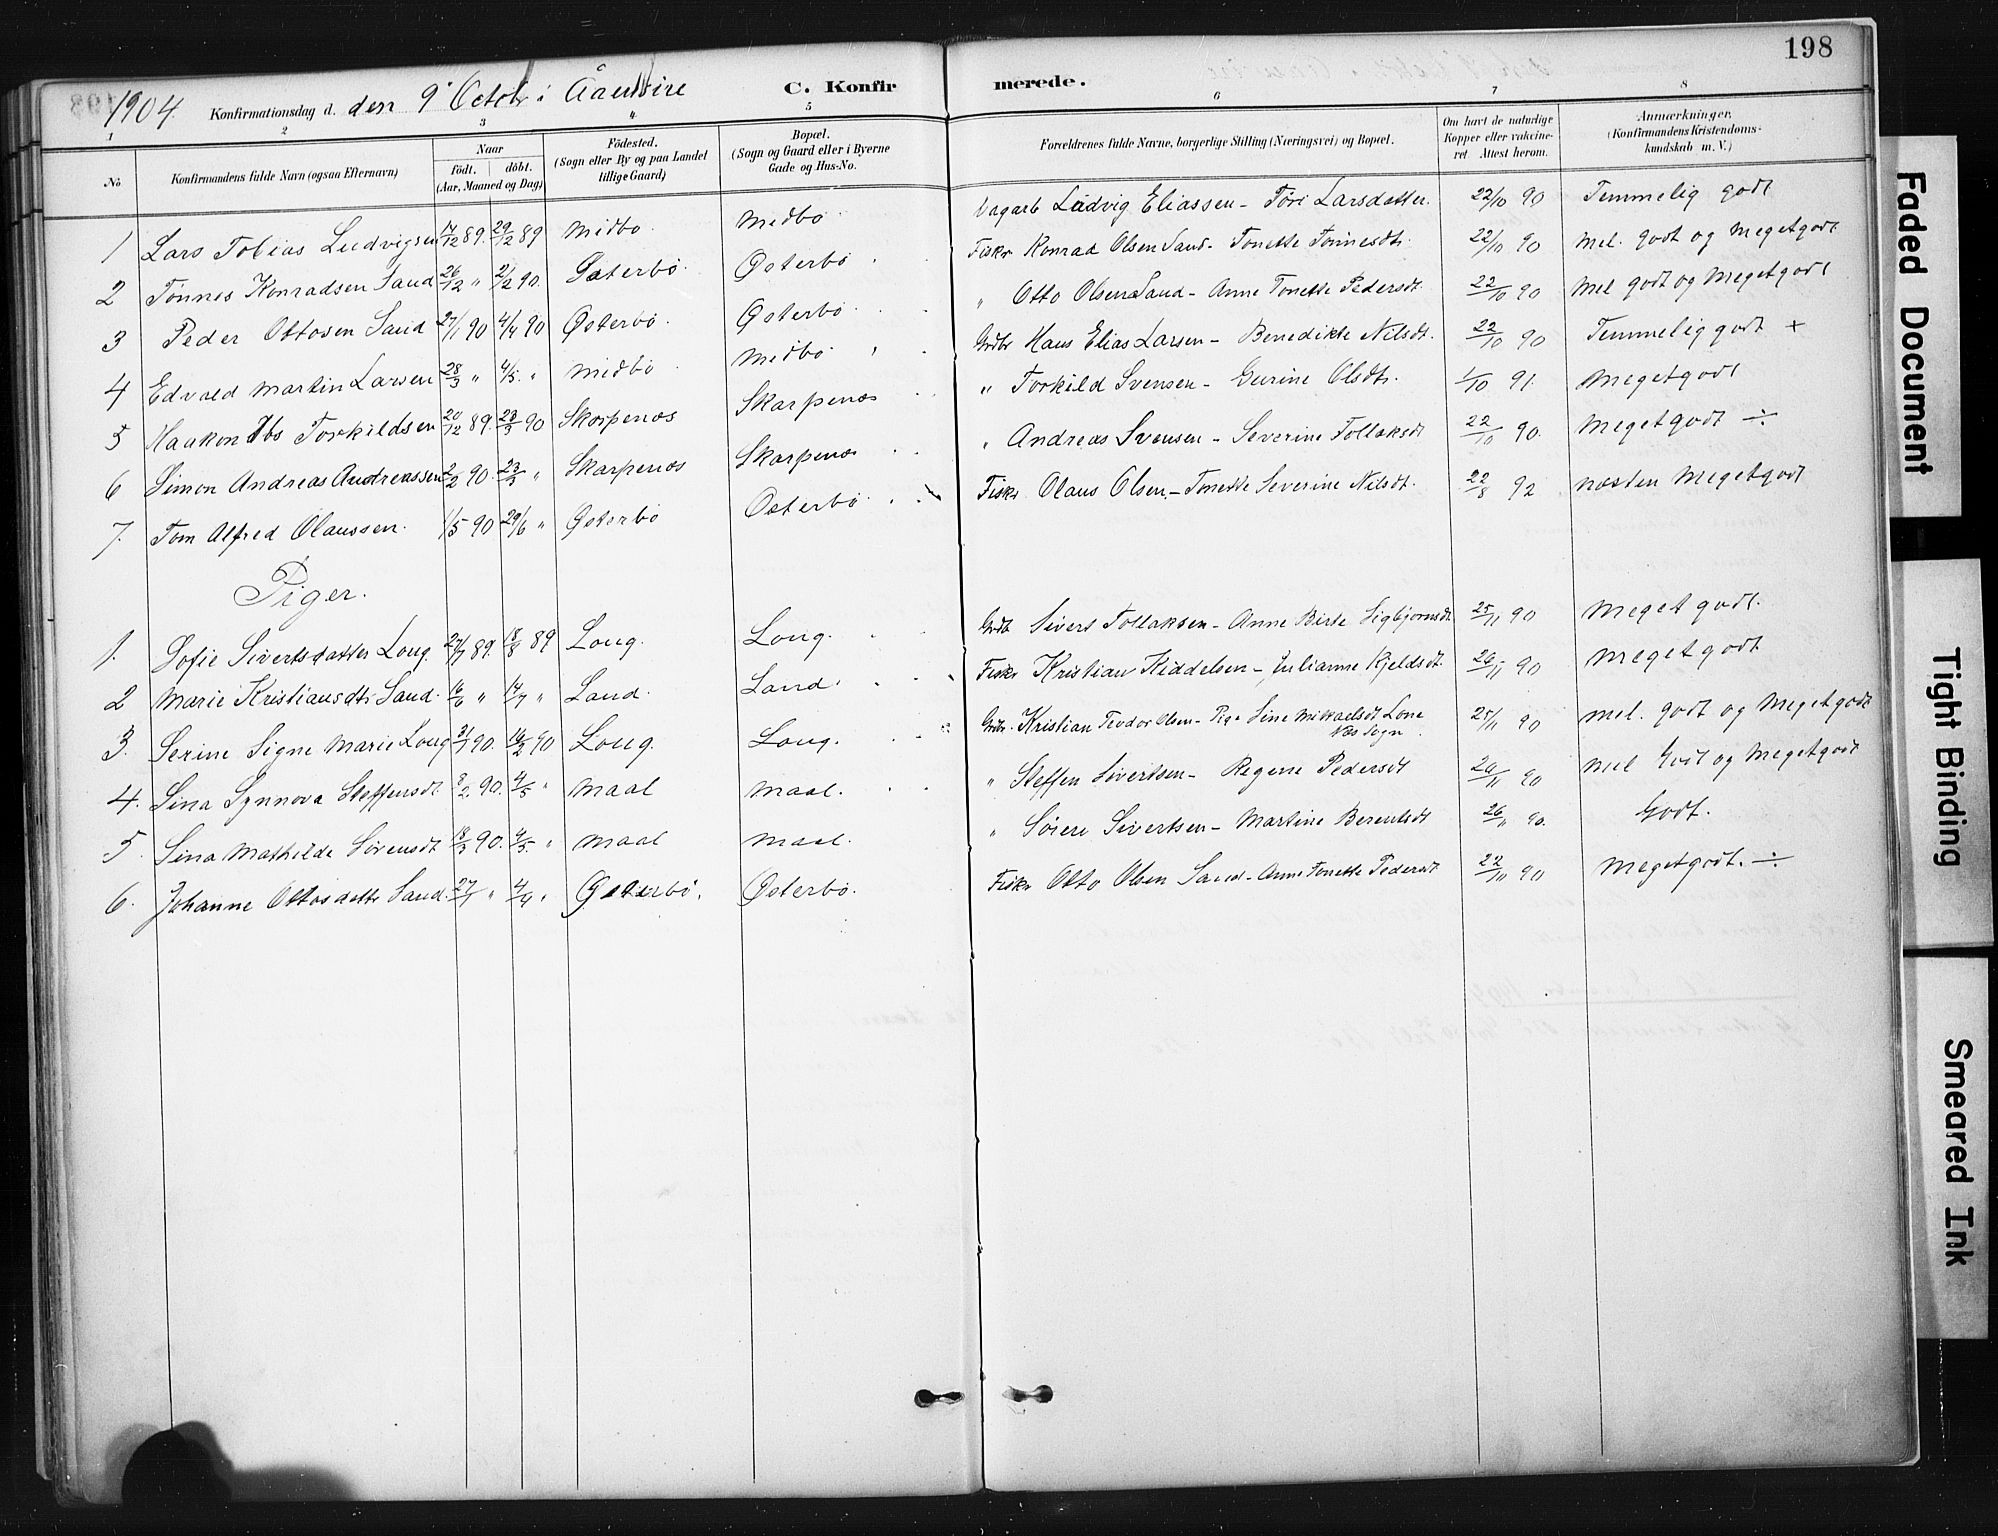 198
1904. Konfirmationsdag d. den 9' Octobr i Aaensire C. Konfirmerede.
1 2 3 4 5 6 7 8
No Konfirmandens fulde Navn (ogsaa Efternavn) Naar født. døbt. (Aar, Maaned og Dag) Fødested. (Sogn eller By og paa Landet tillige Gaard) Bopæl. (Sogn og Gaard eller i Byerne Gade og Hus-No. Forældrenes fulde Navne, borgerlige Stilling (Næringsvei) og Bopæl. Om havt de naturlige Kopper eller vakcineret. Attest herom. Anmærkninger, (Konfirmandens Kristendomskundskab m. V.)
1 Lars Tobias Ludvigsen 17/12 89. 29/12 89 Midbø Midbø Dagarb Ludvig Eliassen - Tori Larsdatter. 22/10 90 Temmelig godt
2 Tønnes Konradsen Sand 26/12 " 2/2 90. Østerbø Østerbø Fiskr Konrad Olsen Sand - Tonette Tønnesdtr. 22/10 90 Mel. godt og Megetgodt
3 Peder Ottosen Sand 27/1 90 4/4 90 Østerbø Østerbø " Otto Olsen Sand - Anne Tonette Pedersdt. 22/10 90 Mel godt og Megetgodt
4 Edvald Martin Larsen 28/3 " 4/5. " Midbø Midbø Grdbr Hans Elias Larsen - Benedikte Nilsdt. 22/10 90 Temmelig godt +
5 Haakon Ibs Torkildsen 20/12 89. 23/3 90 Skarpenæs Skarpenæs " Torkild Svensen - Gurine Olsdtr. 1/10 91. Megetgodt
6 Simon Andreas Andreassen 2/2 90. 23/3 " Skarpenæs Skarpenæs " Andreas Svensen - Severine Tollaksdt 22/10 90. Megetgodt ÷
7. Tom Alfred Olaussen. 1/5 90 29/6 " Østerbø Østerbø Fiskr Olaus Olsen - Tonette Severine Nilsdt. 22/8 92 næsten Megetgodt
Piger.
1. Sofie Sivertsdatter Loug. 27/7 89. 18/8 89 Loug. Loug. Grdb Sivert Tollaksen - Anne Birte Sigbjørnsdt 25/11 90 Meget godt.
2 Marie Kristiansdtr Sand. 16/6 " 14/7 " Sand. Sand. Fiskr Kristian Kiddelsen - Julianne Kjeldsdt. 26/11 90 Meget godt
3. Serine Signe Marie Loug 31/1 90. 16/2 90 Loug. Loug. Grdbr. Kristian Teodor Olsen - Pige Sine Mikkaelsdt Lone 25/11 90 mel. godt og Megetgodt
Næs Sogn.
4. Sina Synnova Steffensdt 9/2 90. 4/5 " Maal Maal. " Steffen Sivertsen - Regine Pedersdt 29/11 90 Mel Godt og Megetgodt
5. Sina Mathilde Sørensdt. 18/3 90. 4/5. " Maal Maal. " Søren Sivertsen - Martine Berentsdt 26/11 90. Godt.
6. Johanne Ottosdatter Sand. 27/1 " 4/4 " Østerbø. Østerbø. Fiskr Otto Olsen Sand - Anne Tonette Pedersdt 22/10 90 Megetgodt. ÷
Faded Document
Tight Binding
Smeared Ink